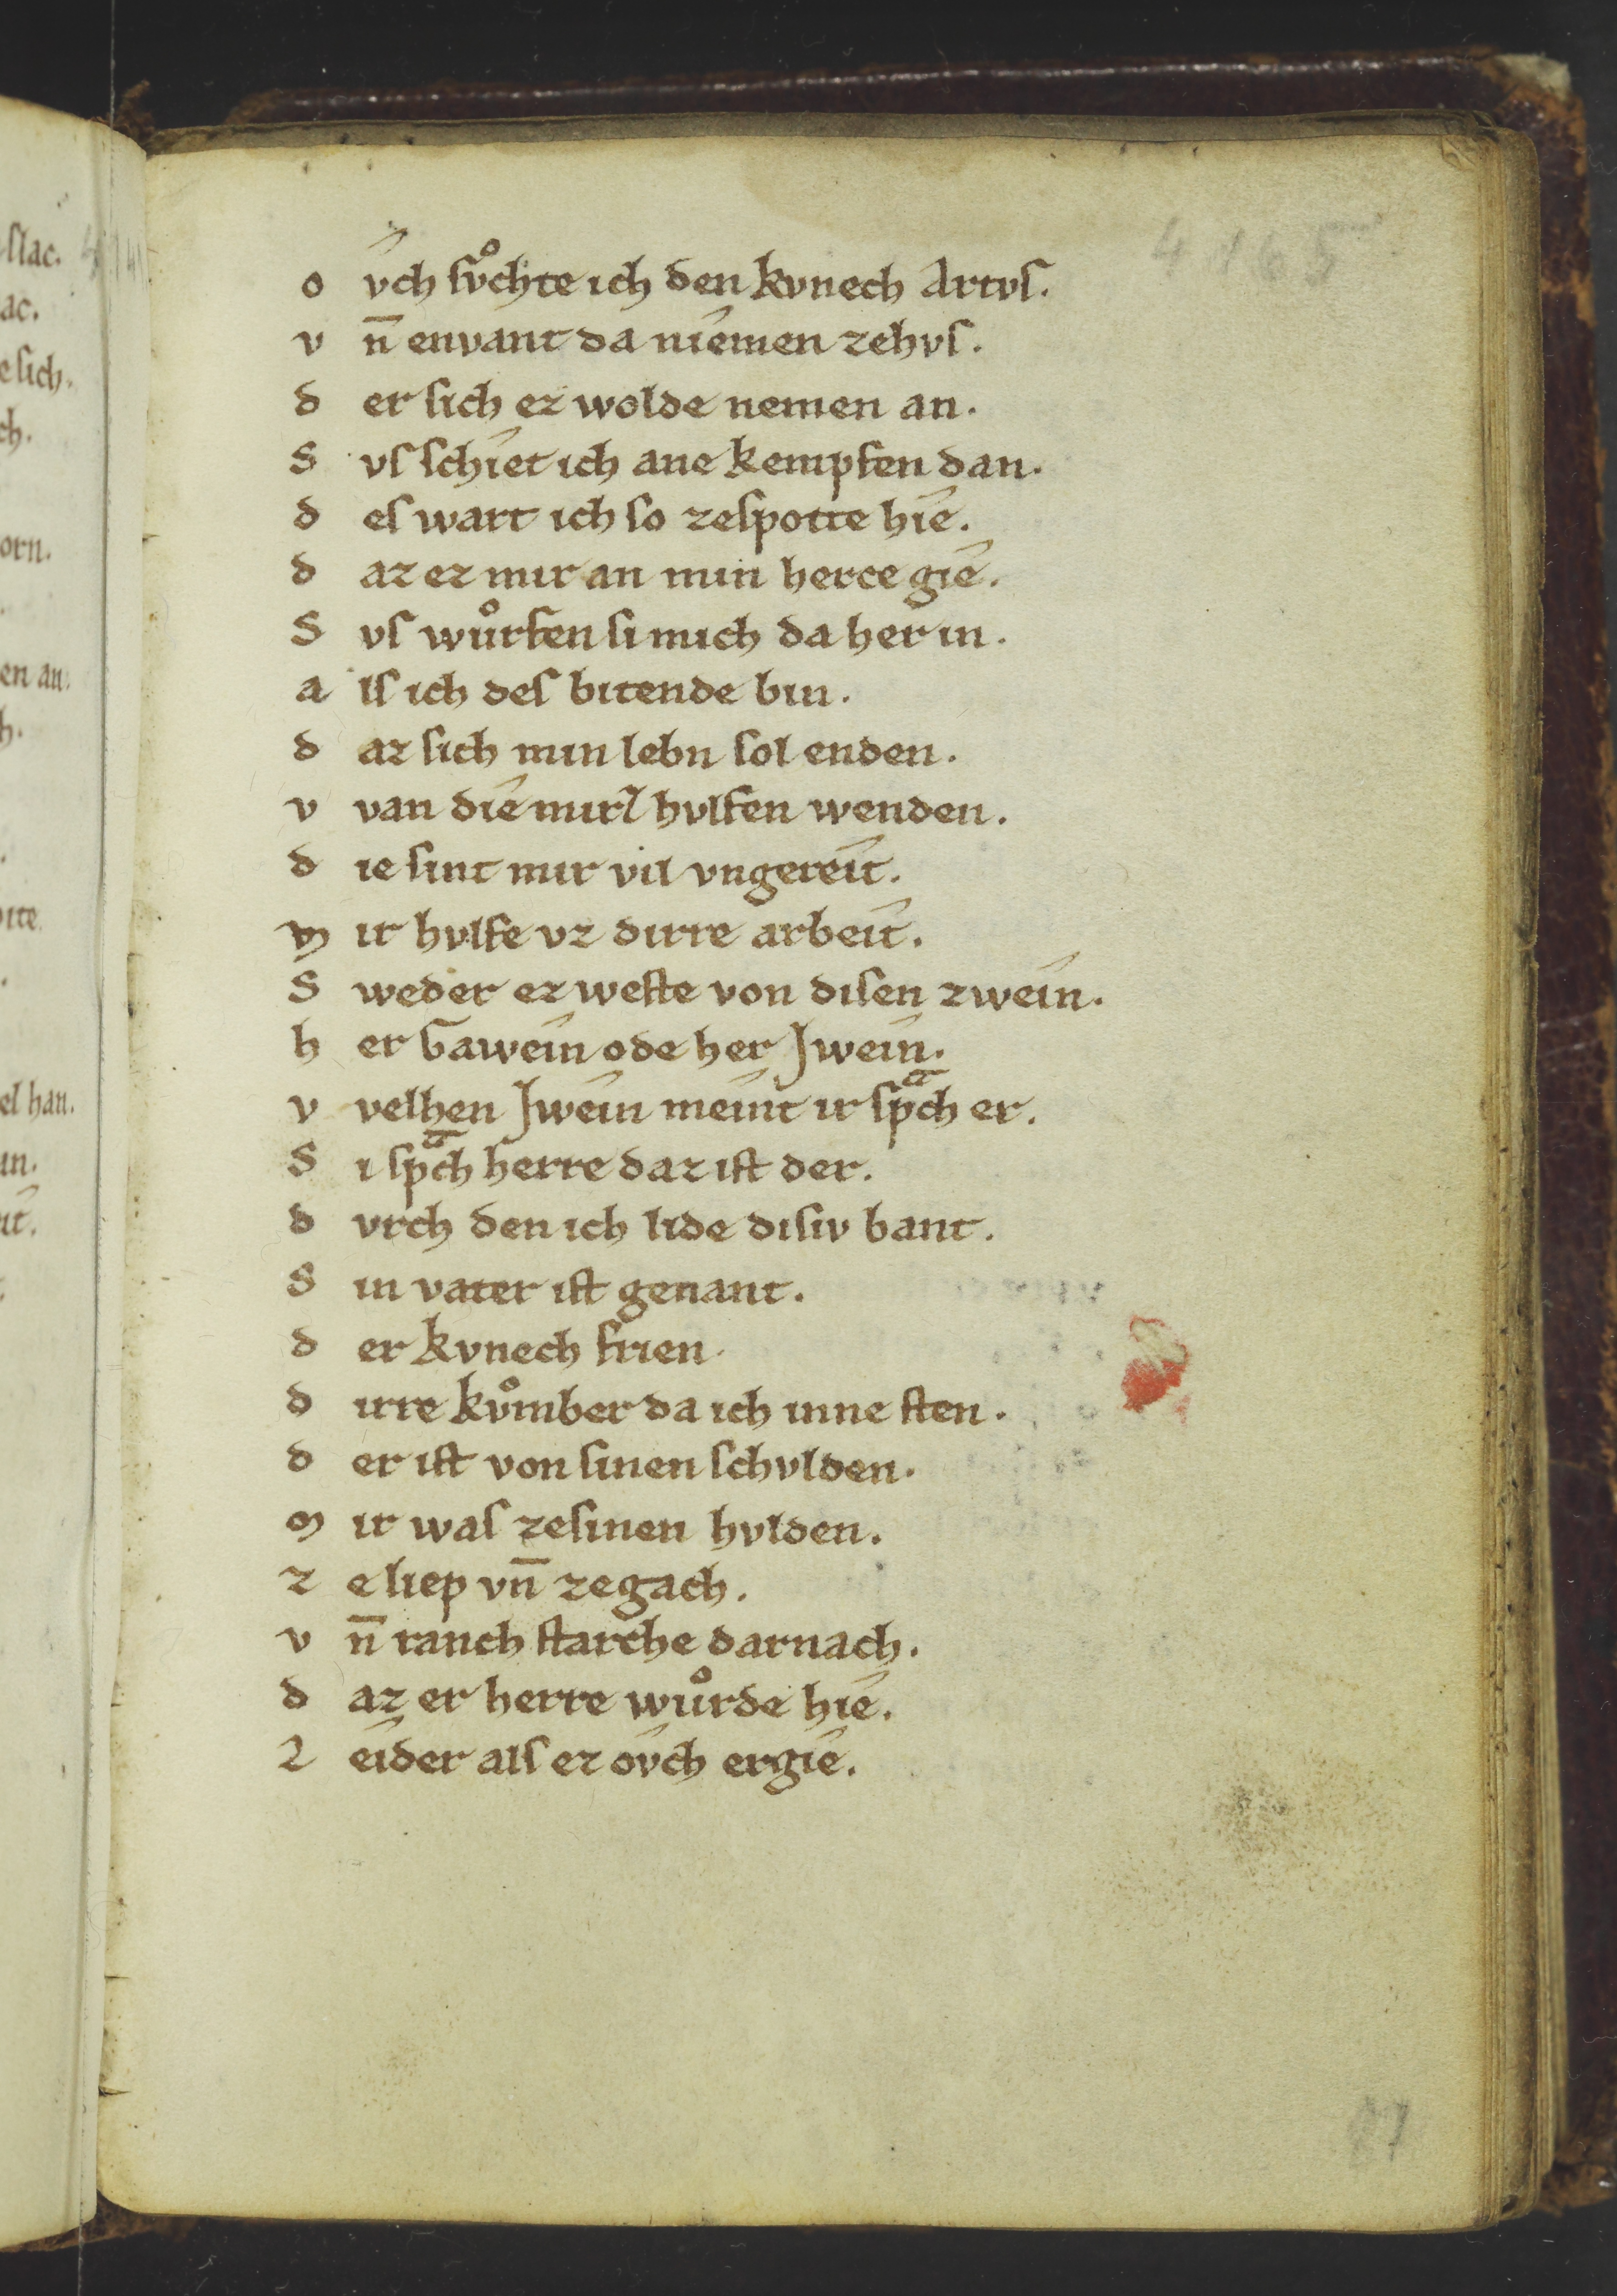 4165
o v́ch svͦchte ich den kvnech Artvſ.
v n̄ envant da niémen zehvſ.
d er ſich ez wolde nemen an.
S vſ ſchiét ich ane kempfen dan.
d eſ wart ich ſo zeſpotte hié.
d az ez mir an min herce gié.
S vſ wuͦrfen ſi mich da her in.
a lſ ich deſ bitende bin.
d az ſich min lebn ſol enden.
v van dié mirſ hvlfen wenden.
d ie ſint mir vil vngereít.
m ir hvlfe vz dirre arbeít.
S weder ez weſte von diſen zweín.
h er Gaweín ode her Jweín.
v velhen Jweín meínt ir ſpͣch er.
S i ſpͣch herre daz iſt der.
d vrch den ich lide diſiv bant.
S in vater iſt genant.
d er kvnech frien.
d irre kvͦmber da ich inne ſten.
d er iſt von ſinen ſchvlden.
m ir waſ zeſinen hvlden.
z e liep vn̄ zegach.
v n̄ ranch ſtarche darnach.
d az er herre wuͦrde hié.
L eíder alſ ez óvch ergié.